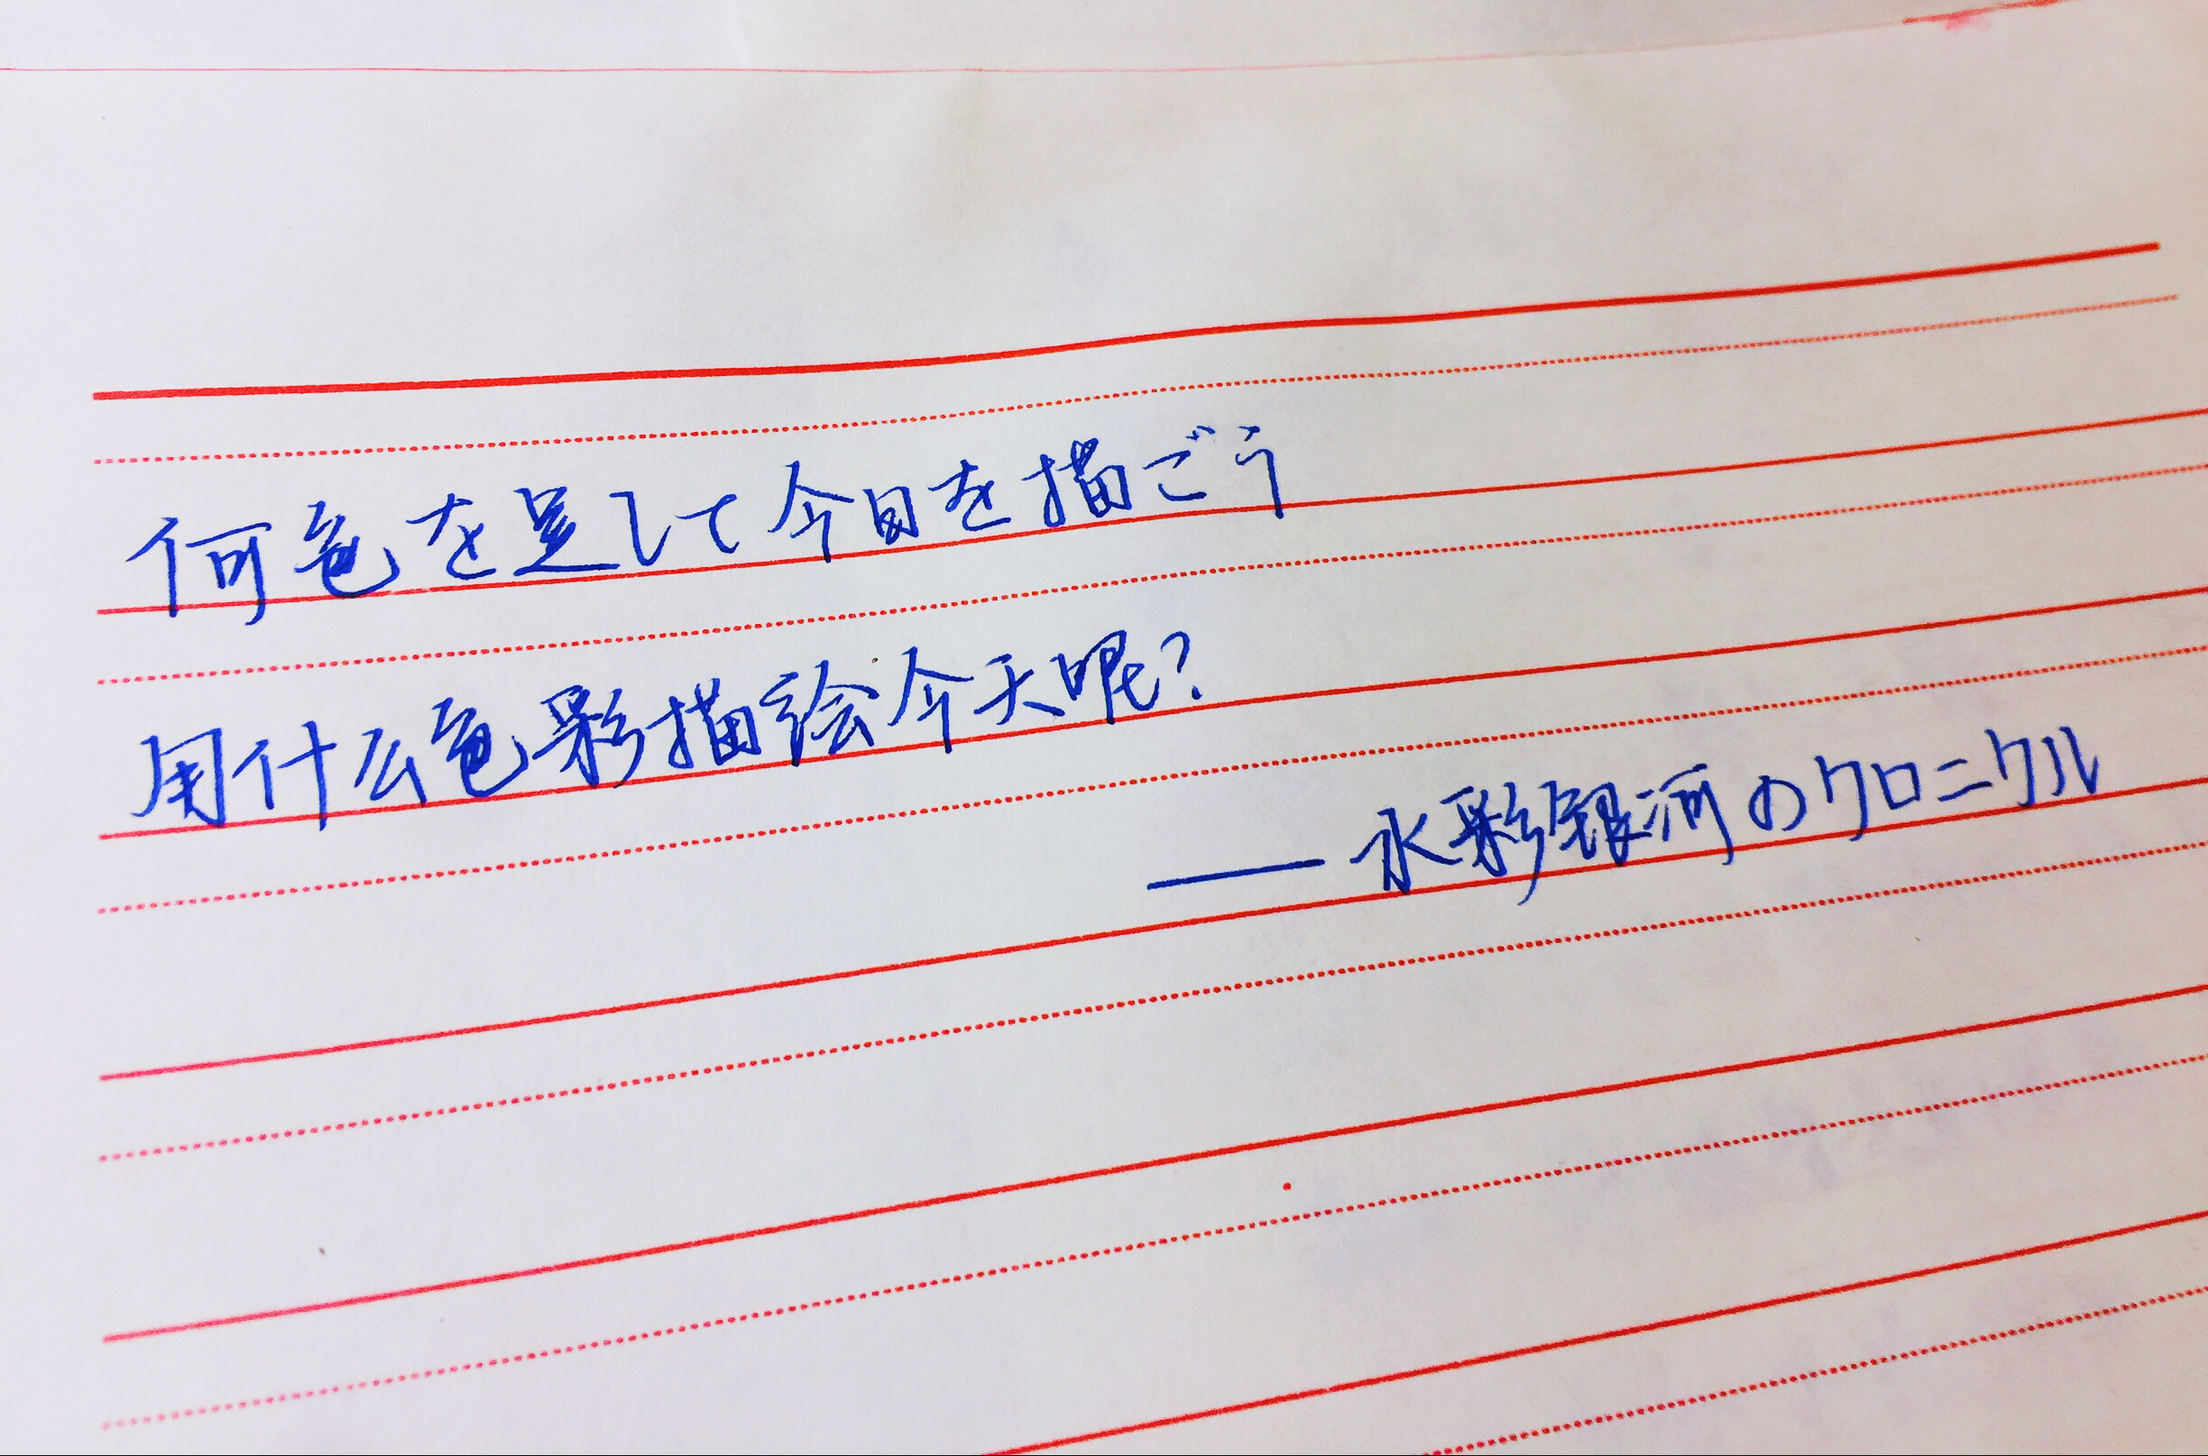 何色を足して今日を描ごう
用什么色彩描绘今天呢?
——水彩銀河のクロニクル